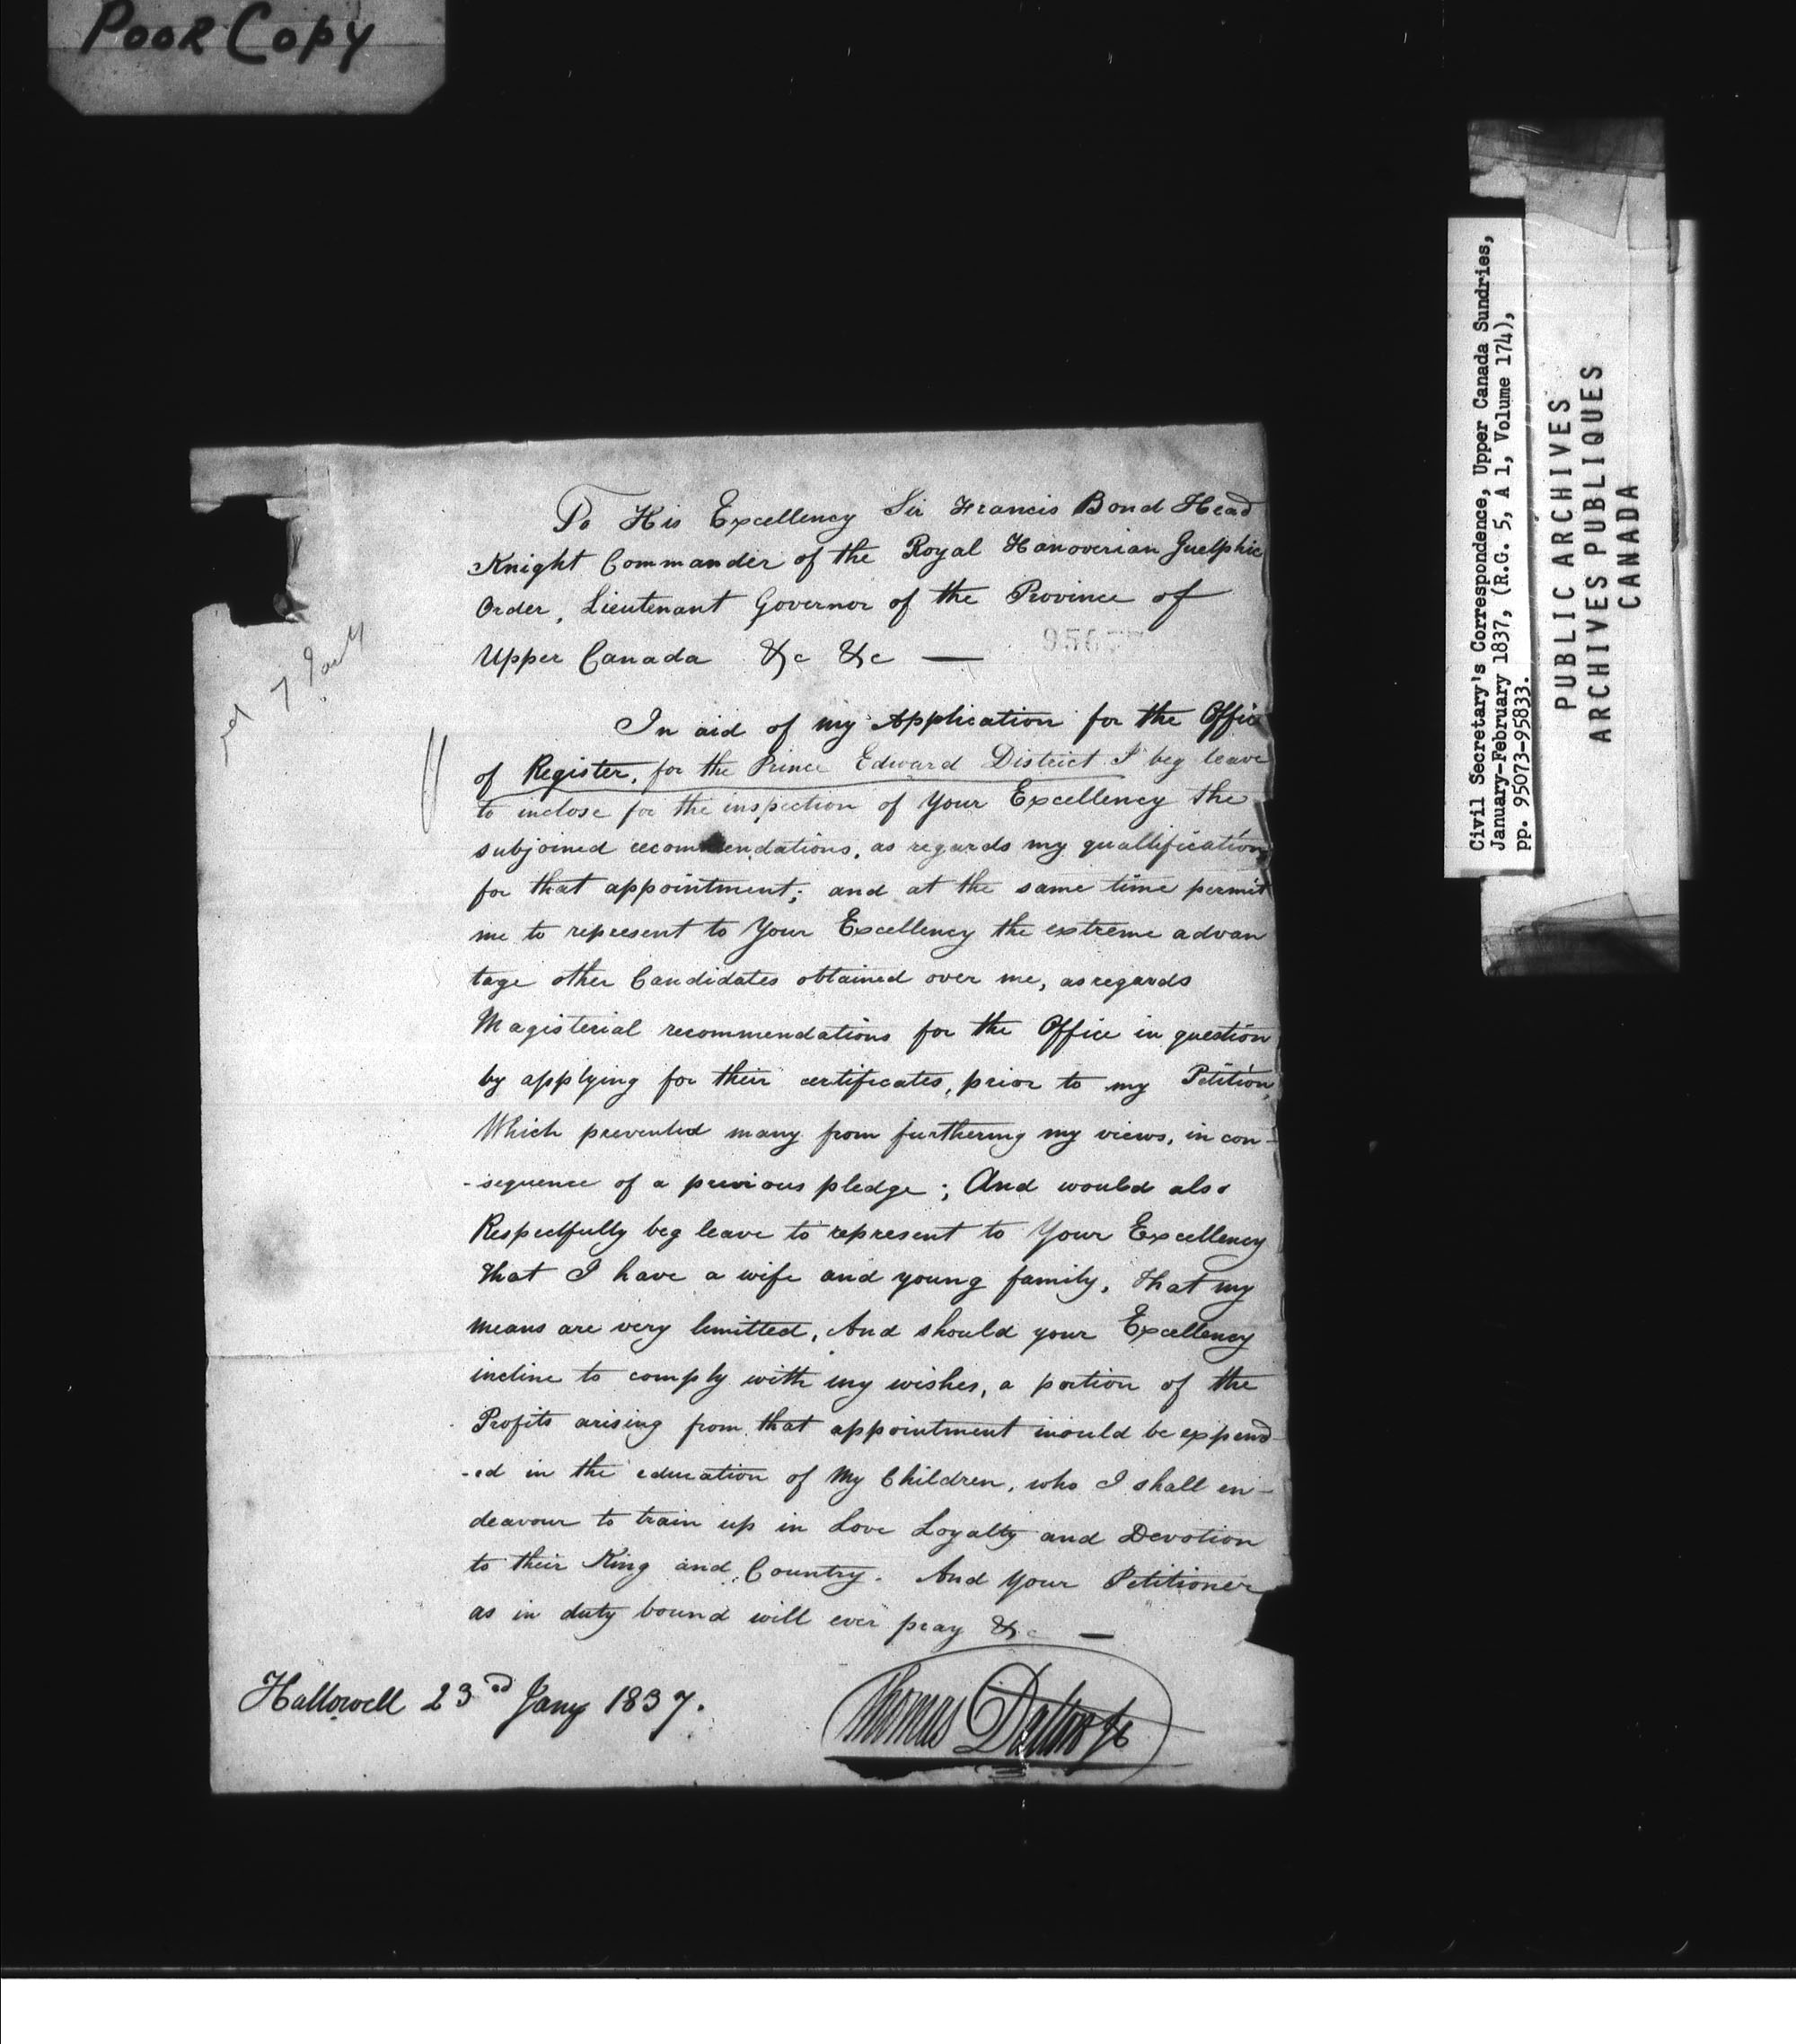 Poor Copy
Civil Secretary's Correspondence, Upper Canada Sundries,
January-February 1837, (R.G. 5, A 1, Volume 174),
pp. 95073-95833.
PUBLIC ARCHIVES
ARCHIVES PUBLIQUES
CANADA
To His Excellency Sir Francis Bond Head
Knight Commander of the Royal Hanoverian Guelphic
Order, Lieutenant Governor of the Province of
Upper Canada &c &c —
In aid of my Application for the Office
of Register, for the Prince Edward District I beg leave
to inclose for the inspection of Your Excellency the
subjoined recommendations, as regards my quallification
for that appointment; and at the same time permit
me to represent to Your Excellency the extreme advan
tage other Candidates obtained over me, as regards
Magisterial recommendations for the Office in question
by applying for their certificates, prior to my Petition,
Which prevented many from furthering my views, in con-
-sequence of a previous pledge; And would also
Respectfully beg leave to represent to Your Excellency
that I have a wife and young family, that my
means are very limitted, And should your Excellency
incline to comply with my wishes, a portion of the
Profits arising from that appointment would be expend-
-ed in the education of My Children, who I shall en-
deavour to train up in Love Loyalty and Devotion
to their King and Country. And Your Petitioner
as in duty bound will ever pray &c —
Hallowell 23rd Jany 1837.
Thomas Dalton